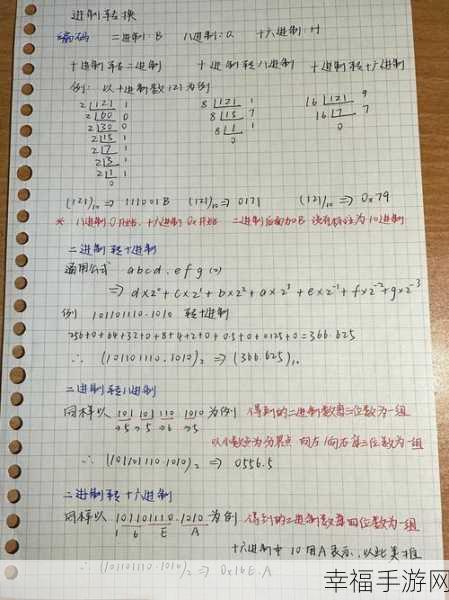 进制转换
编码 二进制:B 八进制:O 十六进制:H
十进制转二进制 十进制转八进制 十进制转十六进制
例: 以十进制数121为例
2 121 1 8 121 1 16 121 9
2 60 0 8 15 7 16 7 7
2 30 0 8 1 1 0
2 15 1 0
2 7 1
2 3 1
2 1 1
0
(121)₁₀ ⇒ 111001B (121)₁₀ ⇒ 0171 (121)₁₀ ⇒ 0x79
* 八进制0开始, 十六进制0x开始 二进制后面加B 没有标注为10进制
二进制转十进制
通用公式 abcd.efg(2)
⇒ d×2⁰+c×2¹+b×2²+a×2³+e×2⁻¹+f×2⁻²+g×2⁻³
例 101101110.1010 转十进制
256+0+64+32+0+8+4+2+0+0.5+0+0.125+0=366.625
∴ (101101110.1010)₂ ⇒ (366.625)₁₀
二进制转八进制
同样以 101 101 110 1010 为例 得到的二进制数每三位数为一组
以小数点为分界点 向左/向右每三位数为一组
∴ (101101110.1010)₂ ⇒ 0556.5
二进制转十六进制
同样以 101101110.1010 为例 得到的二进制数每四位数为一组
1 6 E A
十六进制中 10用A表示,以此类推
∴ (101101110.1010)₂ ⇒ 0x16E.A
幸福手游网